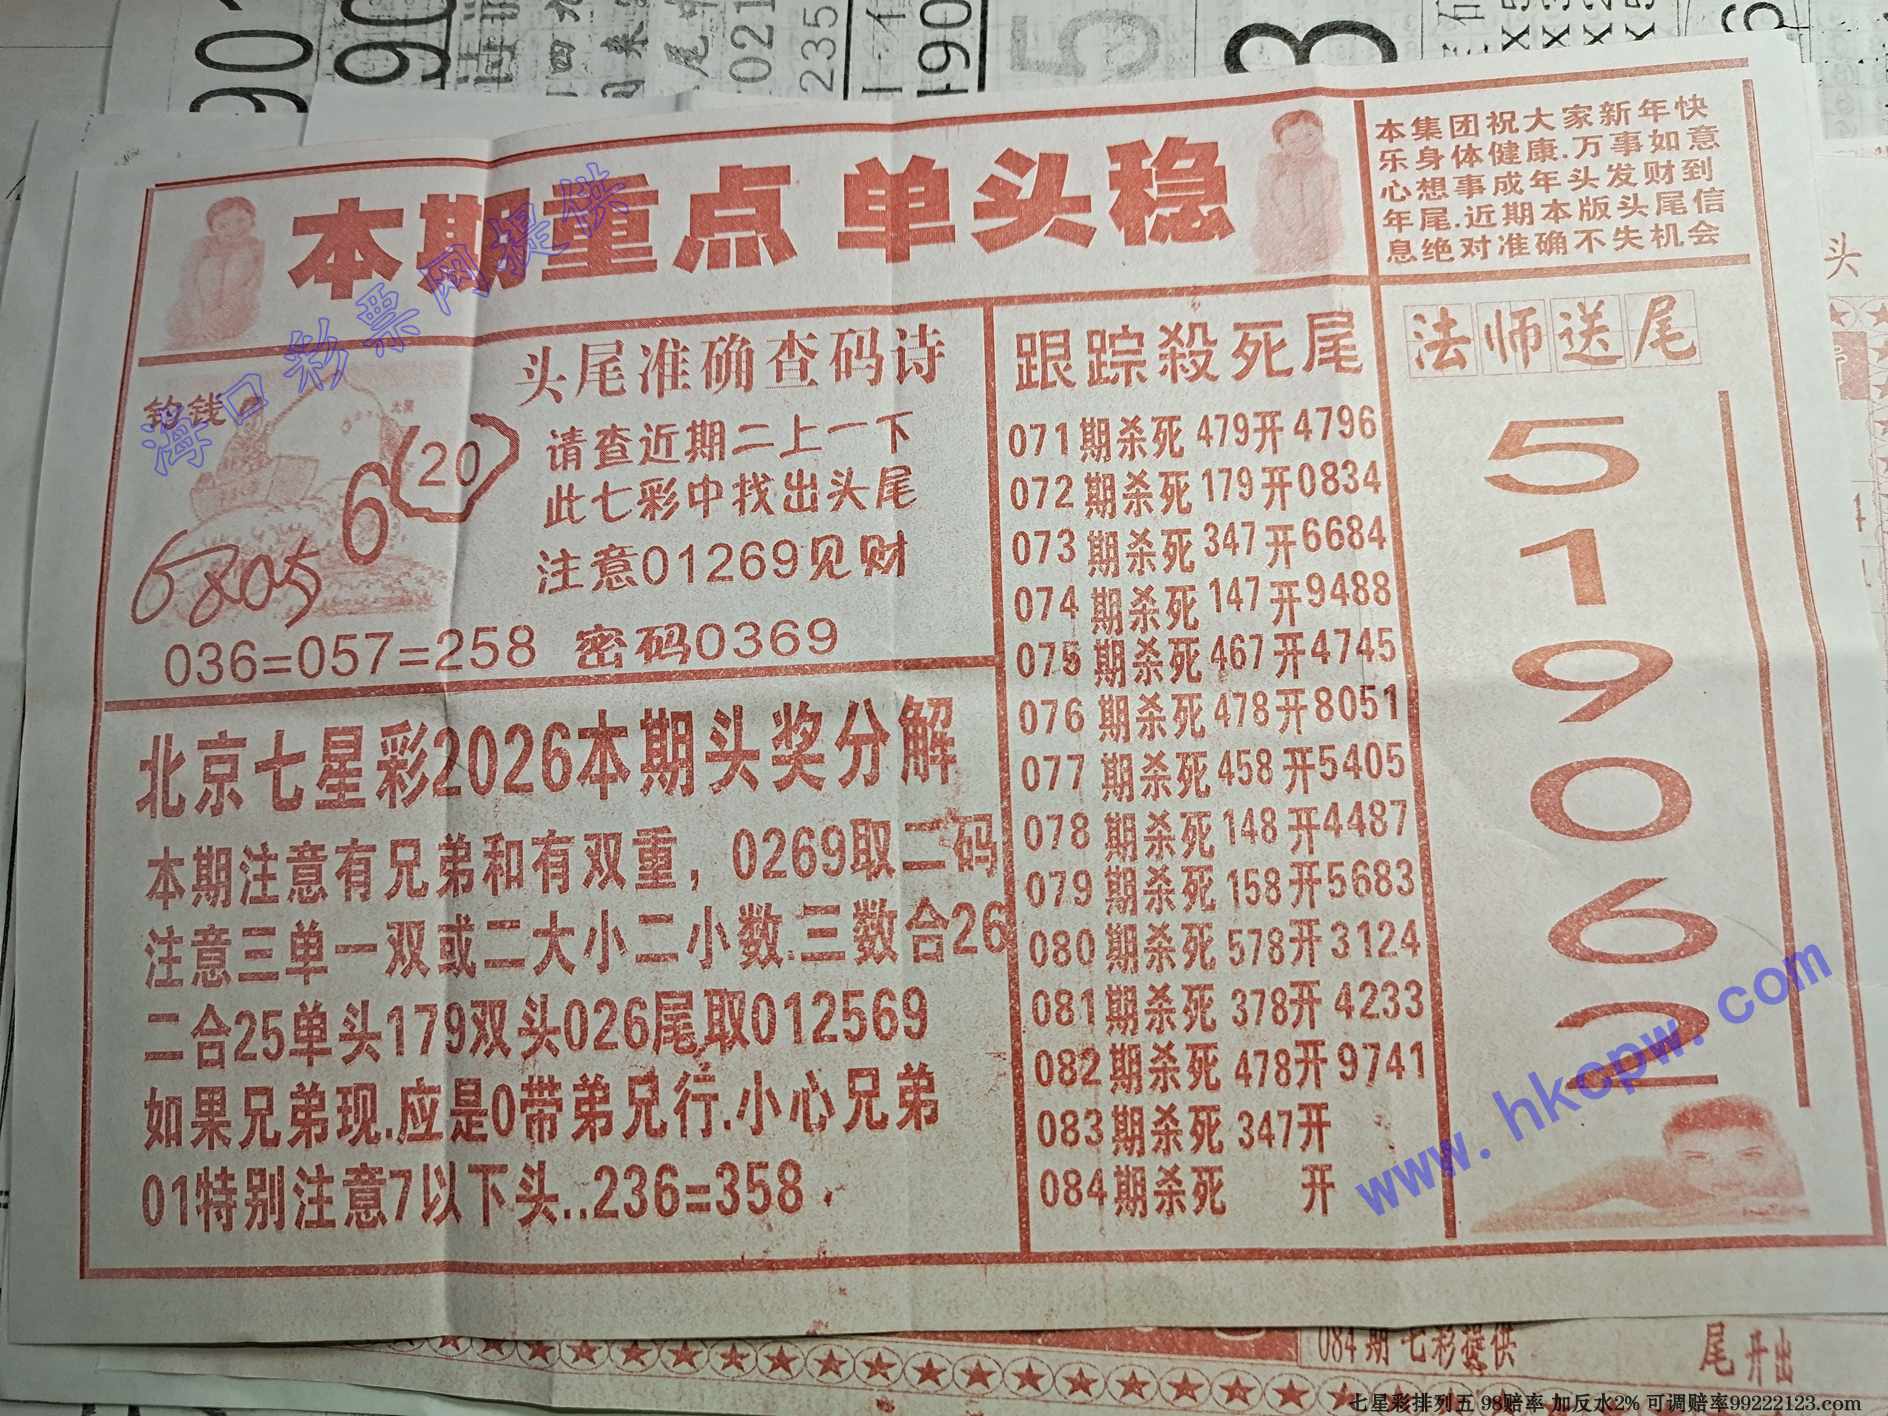 本期重点 单头稳
本集团祝大家新年快
乐身体健康.万事如意
心想事成年头发财到
年尾.近期本版头尾信
息绝对准确不失机会
海口彩票网提供
钓钱
6(20)
6805
头尾准确查码诗
请查近期二上一下
此七彩中找出头尾
注意01269见财
036=057=258 密码0369
北京七星彩2026本期头奖分解
本期注意有兄弟和有双重，0269取二码
注意三单一双或二大小二小数.三数合26
二合25单头179双头026尾取012569
如果兄弟现.应是0带弟兄行.小心兄弟
01特别注意7以下头..236=358
跟踪殺死尾
071期杀死479开4796
072期杀死179开0834
073期杀死347开6684
074期杀死147开9488
075期杀死467开4745
076期杀死478开8051
077期杀死458开5405
078期杀死148开4487
079期杀死158开5683
080期杀死578开3124
081期杀死378开4233
082期杀死478开9741
083期杀死347开
084期杀死 开
法师送尾
5
1
9
0
6
2
www.hkcpw.com
084期七彩提供
尾开出
七星彩排列五 98赔率 加反水2% 可调赔率99222123.com